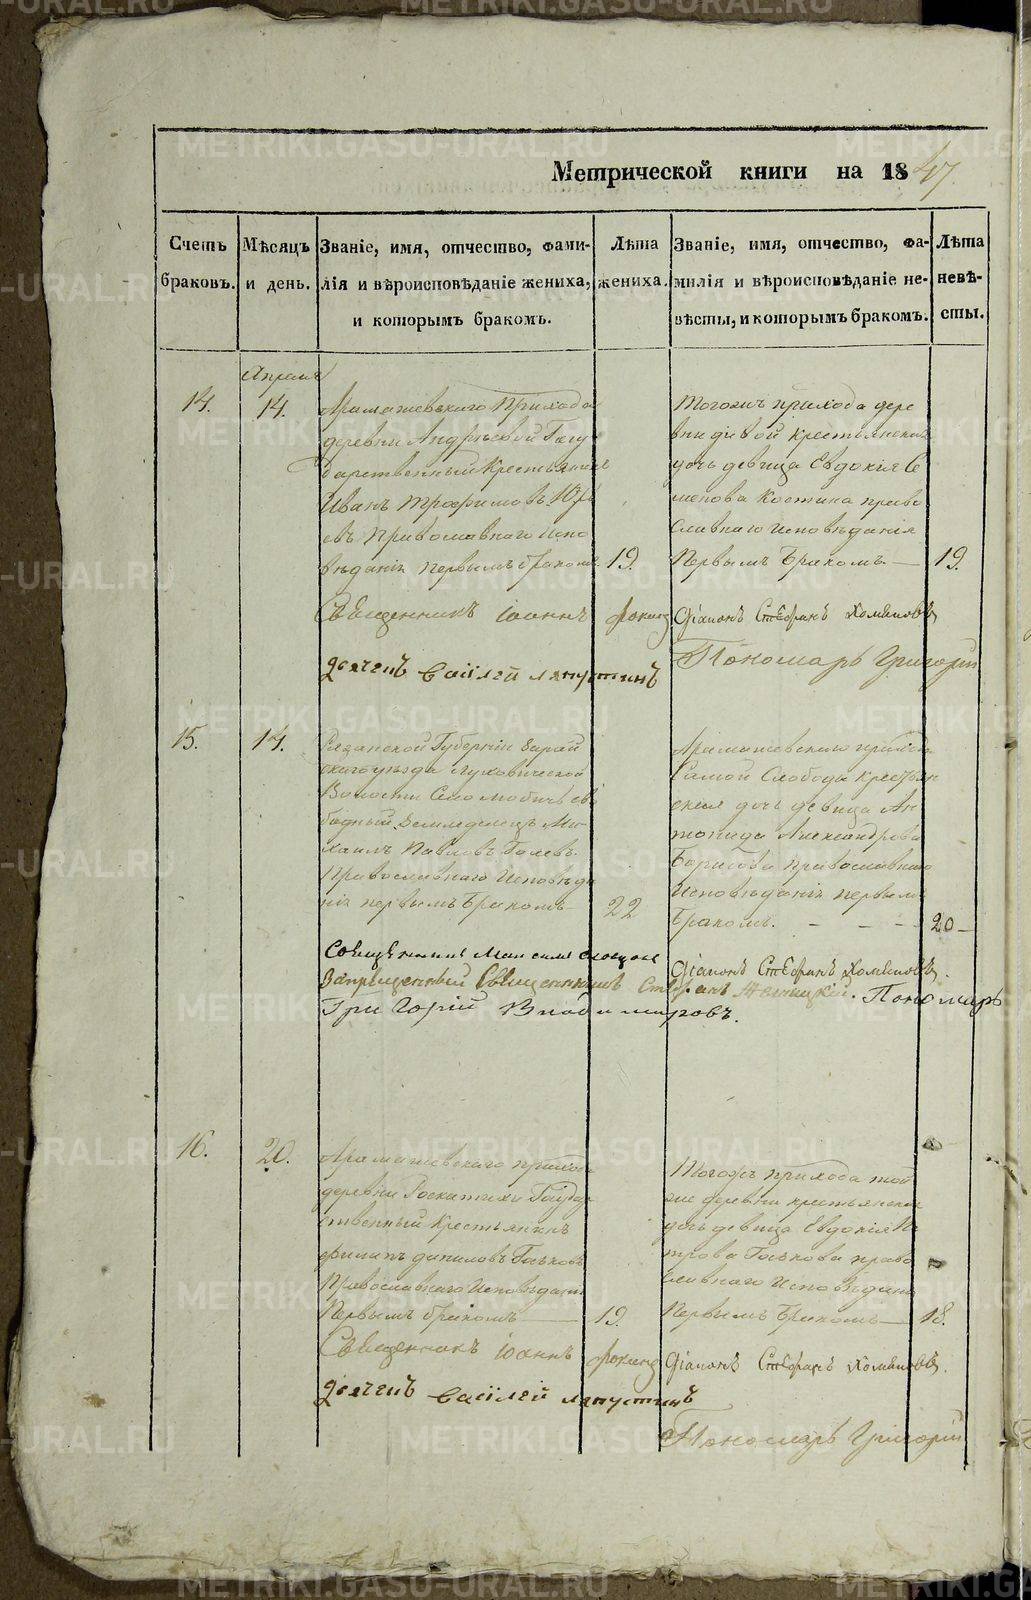 Метрической книги на 1847.
Счетъ браковъ.
Мѣсяцъ и день.
Званіе, имя, отчество, фамилія и вѣроисповѣданіе жениха, и которымъ бракомъ.
Лѣта жениха.
Званіе, имя, отчество, фамилія и вѣроисповѣданіе невѣсты, и которымъ бракомъ.
Лѣта невѣсты.
Апреля
14.
14.
Арамашевскаго Прихода
деревни
Крестьянинъ
Иванъ Трофимовъ Юрь
евъ Православнаго испо
вѣданія первымъ бракомъ
19.
Тогожъ прихода дере
вни крестьянская
дочь девица Евдокія Се
менова Костина право
славнаго исповѣданія
Первымъ Бракомъ
19.
Священникъ Іоаннъ
Діаконъ Стефанъ Хомяковъ
дьячекъ Василей Ляпустинъ
Пономарь Григорій
15.
14.
Рязанской Губерніи Зарай
скаго уѣзда Луховической
Волости Село сво
бодный Земледелецъ Ми
хаилъ Павловъ
Православнаго Исповѣда
нія первымъ Бракомъ
22
Арамашевскаго прихода
Самой Слободы крестьян
ская дочь девица Ан
тонида Александрова
Борисова Православнаго
Исповѣданія первымъ
Бракомъ.
20
Священникъ
Діаконъ Стефанъ Хомяковъ.
Запрещенный Священникъ Стефанъ Пономарь
Григорій Владимировъ.
16.
20.
Арамашевскаго прихода
деревни Государ
ственный Крестьянинъ
Филипъ даниловъ Гаьковъ
Православнаго Исповѣданія
Первымъ бракомъ
19.
Тогожъ прихода той
же деревни крестьянская
дочь девица Евдокія Пе
трова право
славнаго Исповѣданія
Первымъ Бракомъ
18.
Священникъ Іоаннъ
Діаконъ Стефанъ Хомяковъ.
дьячекъ Василей Ляпустинъ
Пономарь Григорій
METRIKI.GASO-URAL.RU